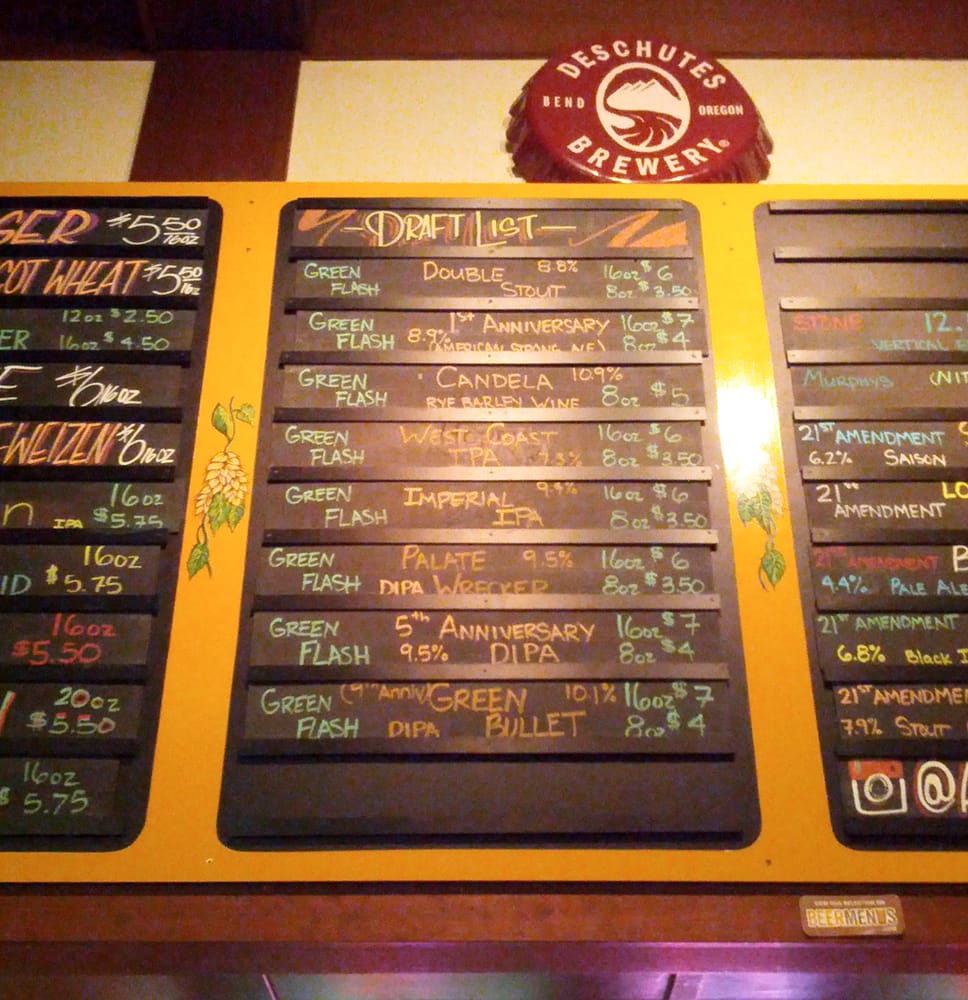 DESCHUTES
BEND OREGON
BREWERY®
$5 50/16oz
COT WHEAT $5 50/16oz
12oz $2.50
ER 16oz $4.50
E $6/16oz
-WEIZEN $6/16oz
16oz
n IPA $5.75
16oz
ID $5.75
16oz
$5.50
20oz
$5.50
16oz
$5.75
-DRAFT LIST-
GREEN DOUBLE 8.8% 16oz $6
FLASH STOUT 8oz $3.50
GREEN 1st ANNIVERSARY 16oz $7
FLASH 8.9% (AMERICAN STRONG ALE) 8oz $4
GREEN CANDELA 10.9%
FLASH RYE BARLEY WINE 8oz $5
GREEN WEST COAST 16oz $6
FLASH IPA 7.3% 8oz $3.50
GREEN IMPERIAL 9.4% 16oz $6
FLASH IPA 8oz $3.50
GREEN PALATE 9.5% 16oz $6
FLASH DIPA WRECKER 8oz $3.50
GREEN 5th ANNIVERSARY 16oz $7
FLASH 9.5% DIPA 8oz $4
GREEN (9th Anniv) GREEN 10.1% 16oz $7
FLASH DIPA BULLET 8oz $4
STONE 12.
VERTICAL E
MURPHYS (NIT
21ST AMENDMENT S
6.2% SAISON
21ST LO
AMENDMENT
21ST AMENDMENT B
4.4% PALE ALE
21ST AMENDMENT
6.8% Black I
21ST AMENDME
7.9% STOUT
@
VIEW OUR SELECTION ON
BEERMENUS